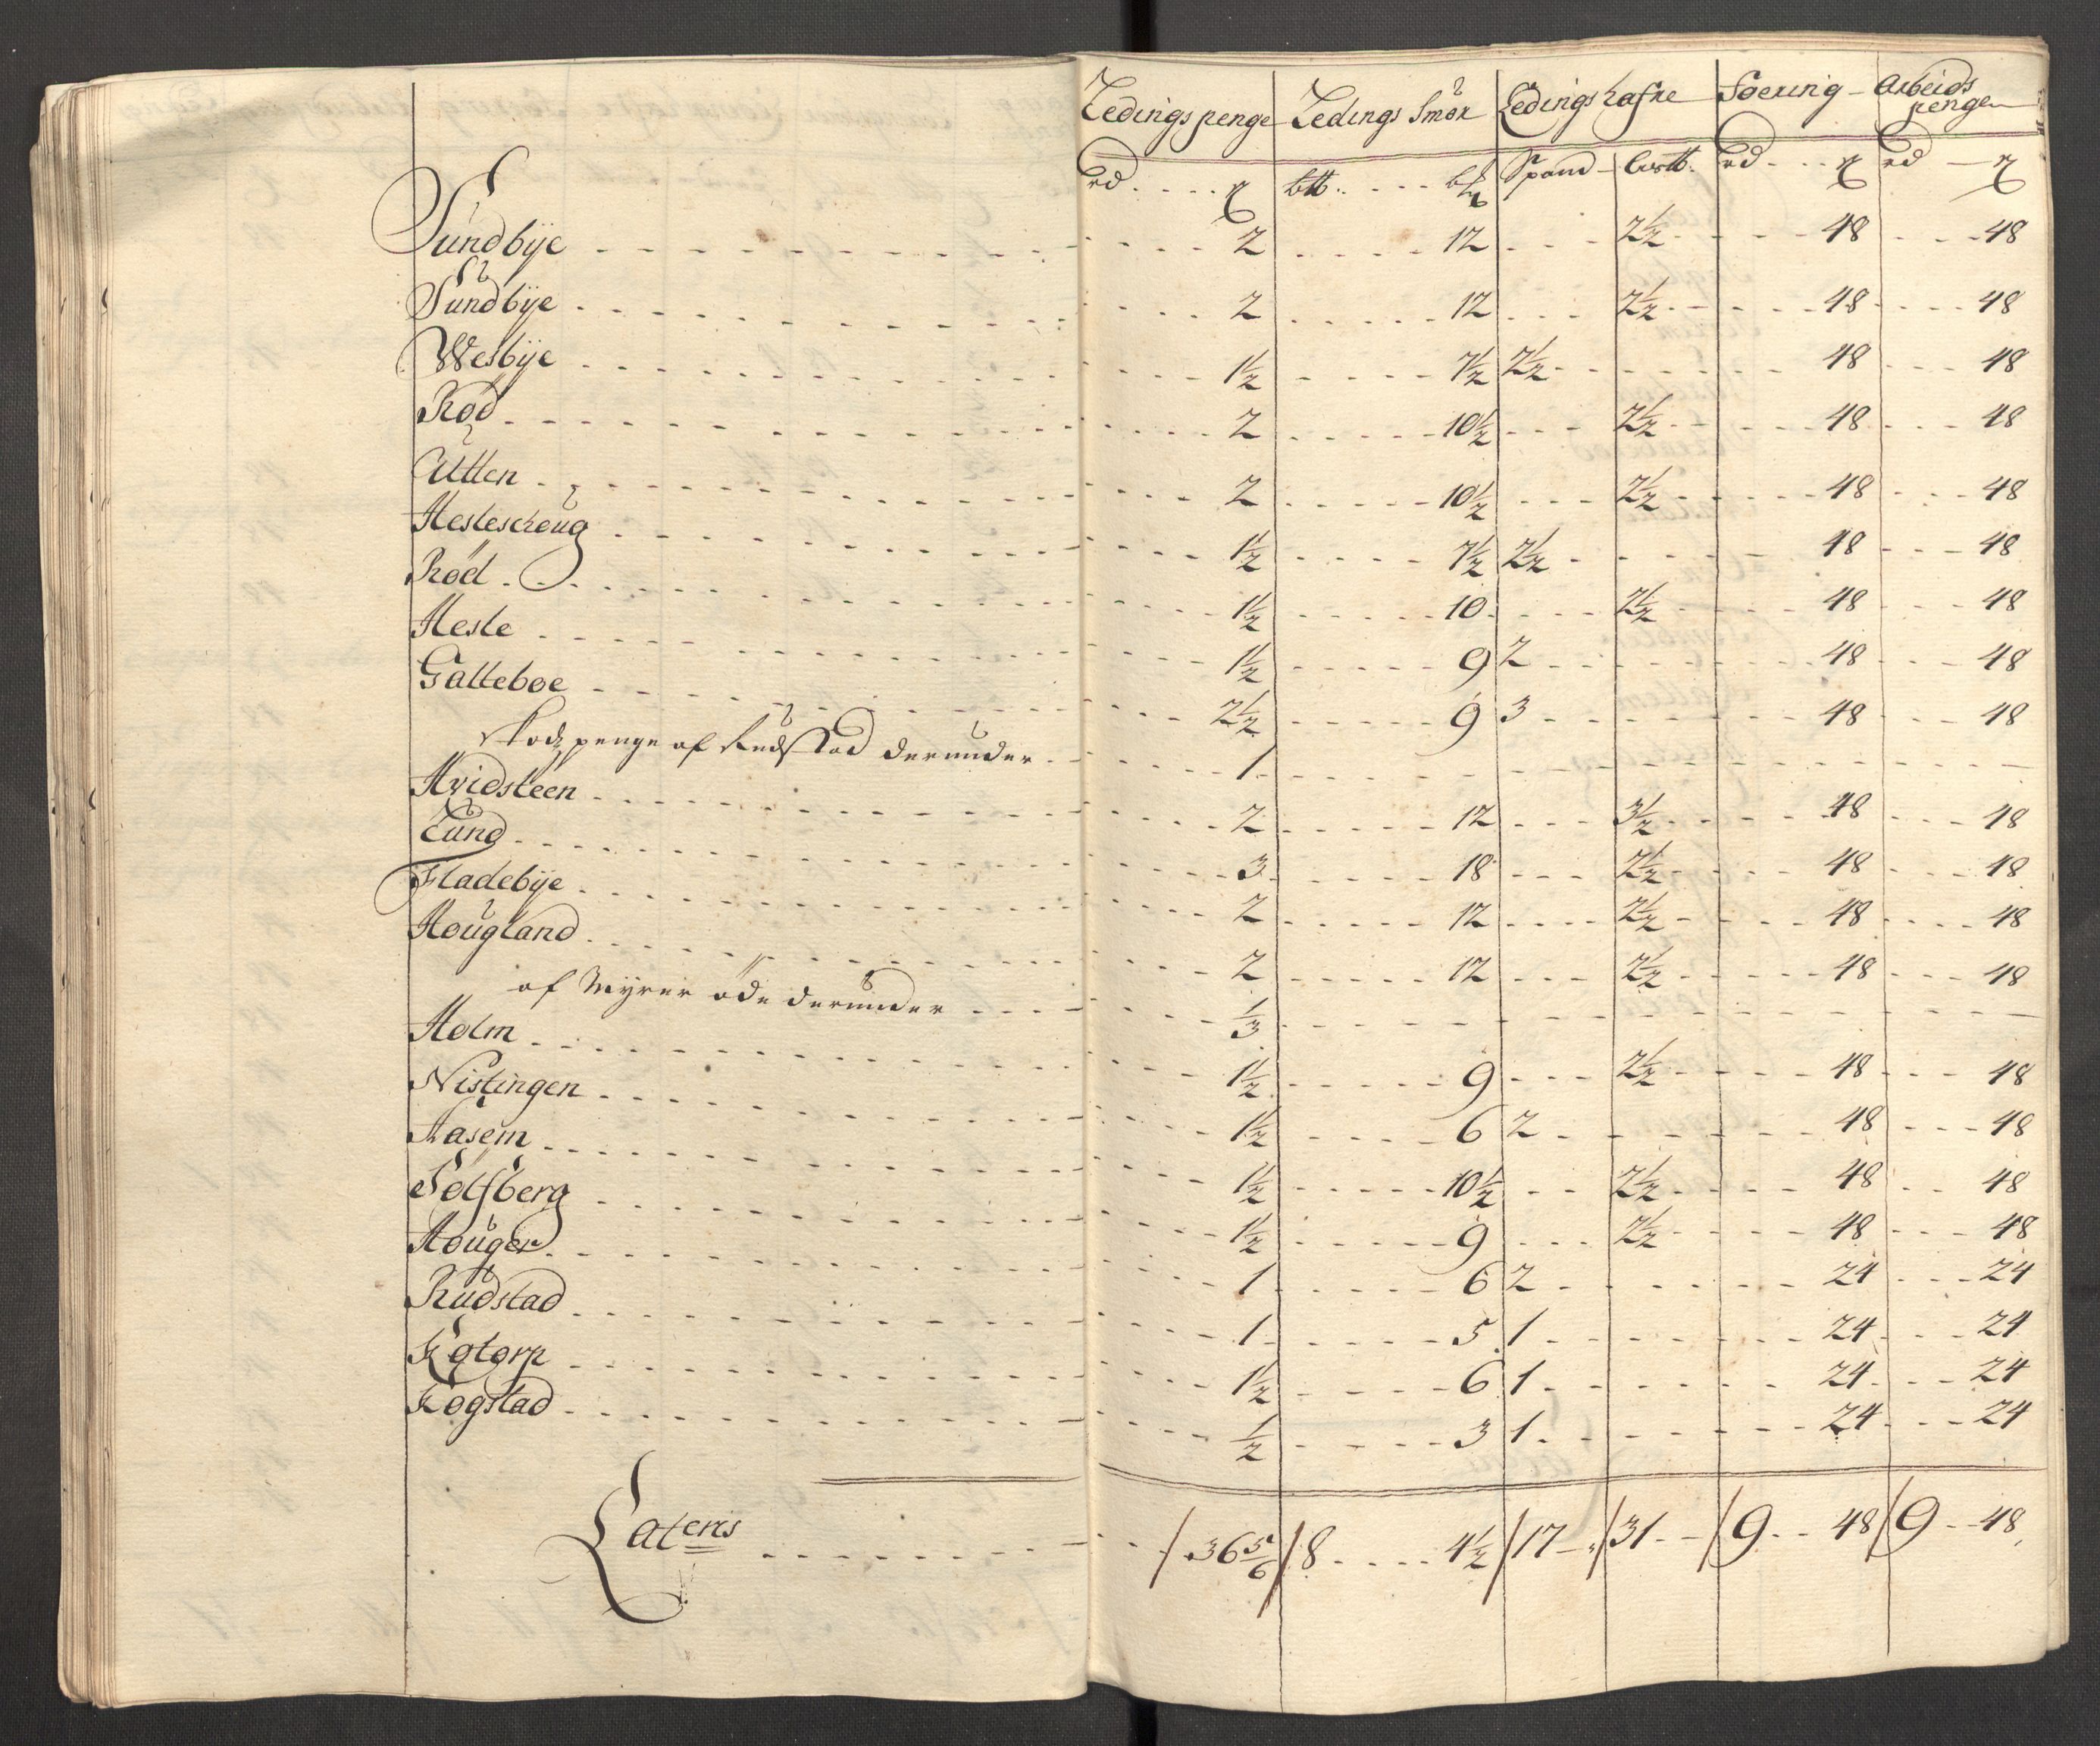 Ledings penge Ledings Smör Ledings hafre Foering Arbeids penge
rd ß btt. btt Spand Cvrtt. rd ß rd ß
Sundbÿe 2 12 2½ 48 48
Sundbÿe 2 12 2½ 48 48
Wesbÿe 1½ 7½ 2½ 48 48
Röd 2 10½ 2½ 48 48
Utten 2 10½ 2½ 48 48
Hesleschoug 1½ 7½ 2½ 48 48
Röd 1½ 10 2½ 48 48
Hesle 1½ 9 2 48 48
Galteboe 2½ 9 3 48 48
penge af Rudstad derunder 1
Hvidsteen 2 12 3½ 48 48
Lund 3 18 2½ 48 48
Fladebÿe 2 12 2½ 48 48
Hougland 2 12 2½ 48 48
af Myrer öde derunder ⅓
Holm 1½ 9 2½ 48 48
Nistingen 1½ 6 2 48 48
Aasem 1½ 10½ 2½ 48 48
Sölfberg 1½ 9 2½ 48 48
Houger 1 6 2 24 24
Rudstad 1 5 1 24 24
Kotorp 1½ 6 1 24 24
Kogstad ½ 3 1 24 24
Lateris /36⅚ /8 4½ /17 /31 /9 48 /9 48